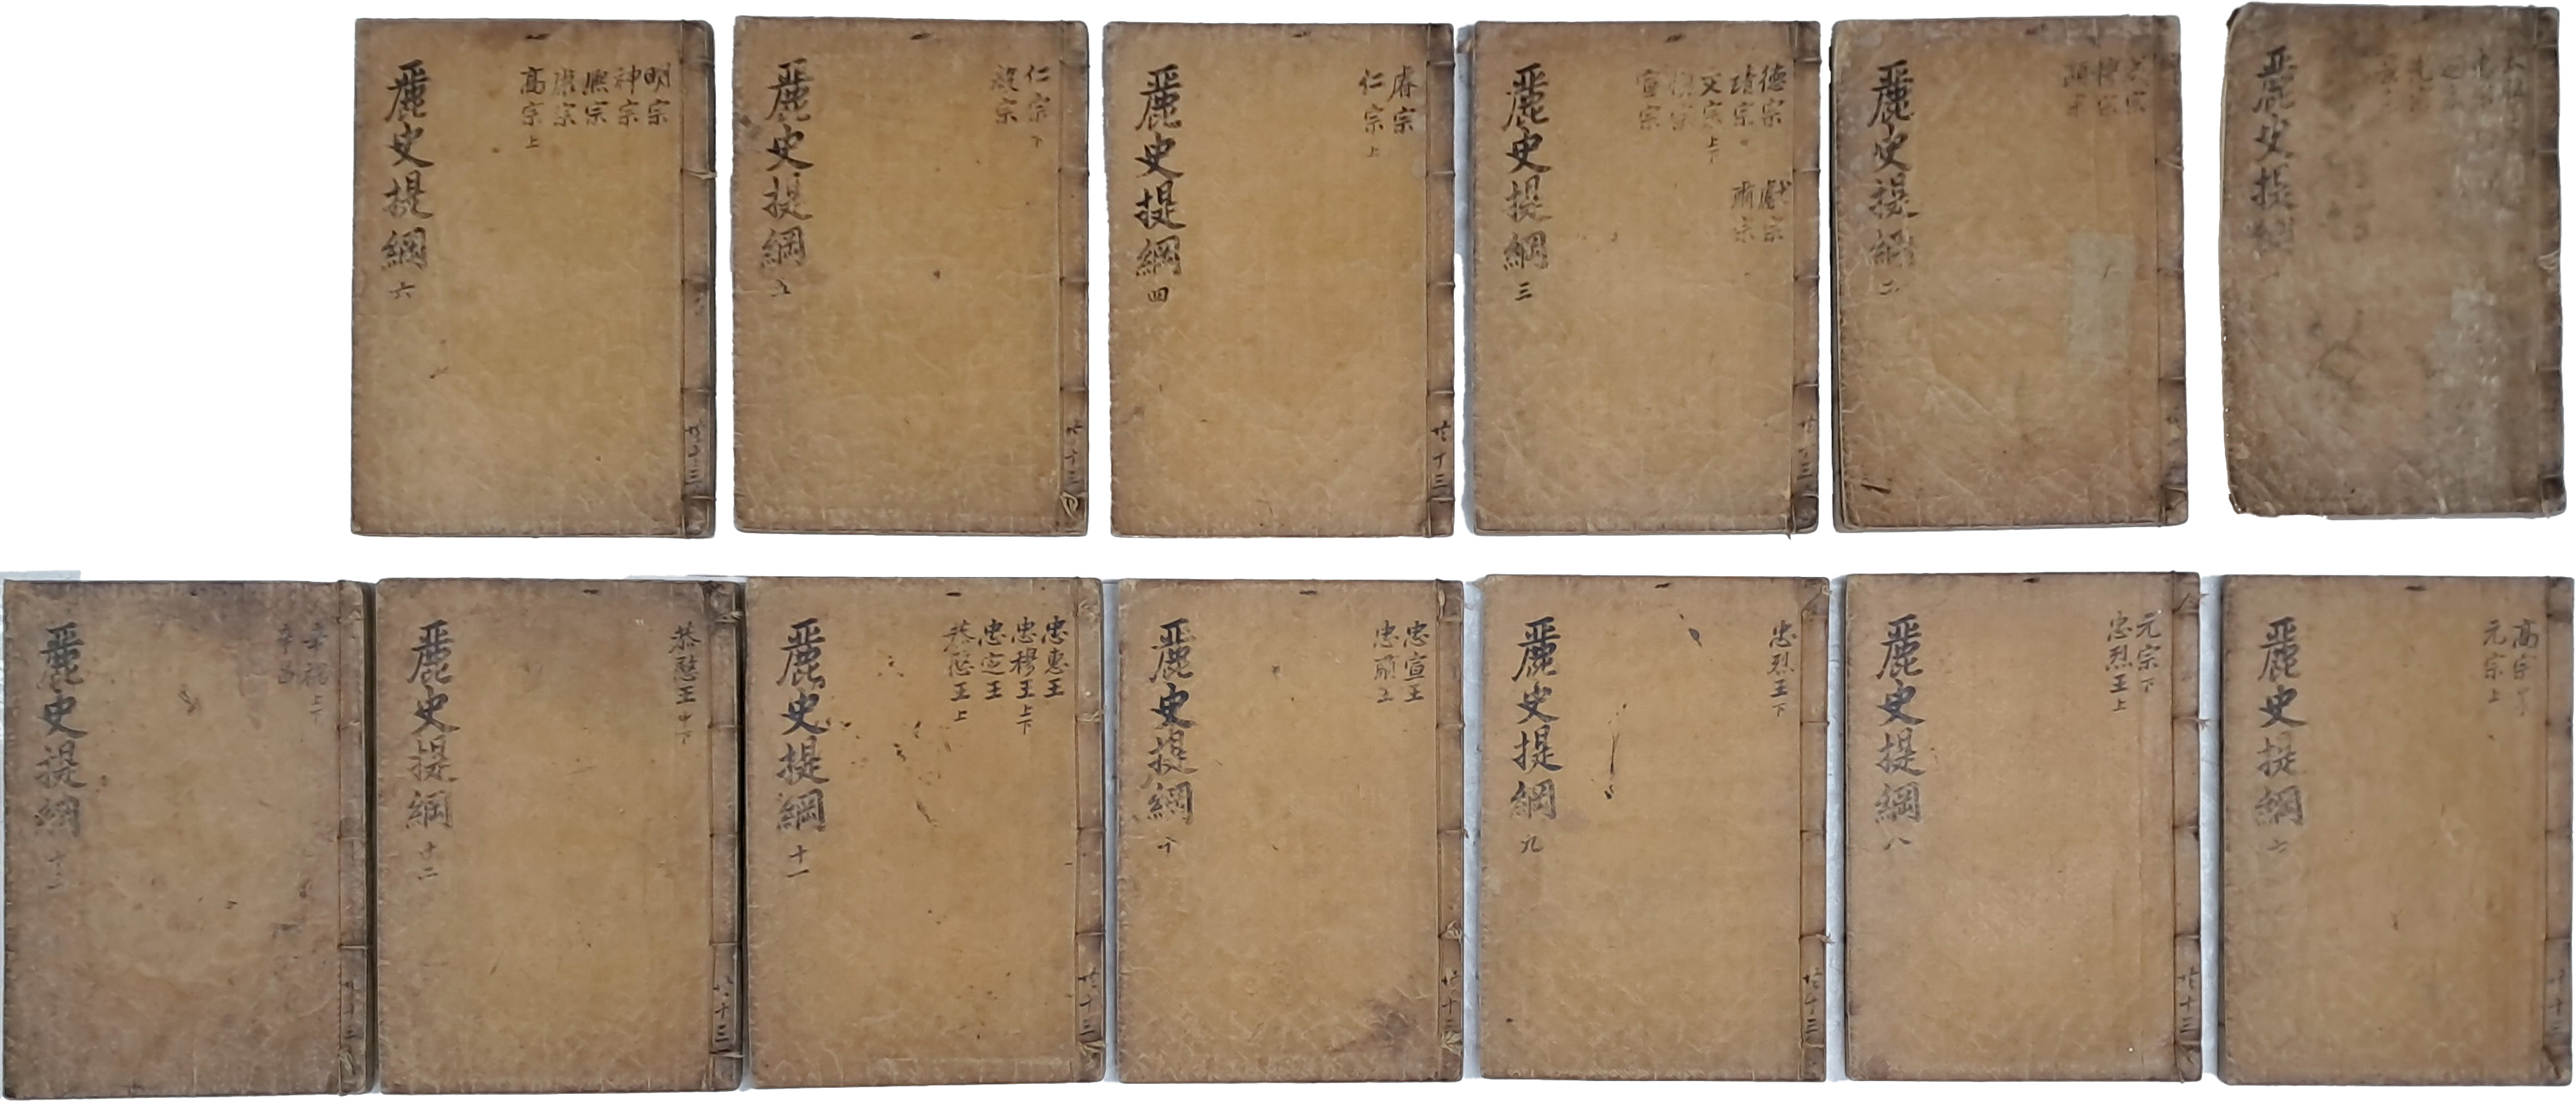 麗史提綱
麗史提綱 二
德宗
靖宗
文宗上下
宣宗
獻宗
肅宗
麗史提綱 三
共十三
睿宗
仁宗上
麗史提綱 四
共十三
仁宗下
毅宗
麗史提綱 五
共十三
明宗
神宗
熙宗
康宗
高宗上
麗史提綱 六
共十三
高宗
元宗上
麗史提綱 七
共十三
元宗下
忠烈王上
麗史提綱 八
共十三
忠烈王下
麗史提綱 九
共十三
忠宣王
忠肅王
麗史提綱 十
共十三
忠惠王
忠穆王上下
忠定王
恭愍王上
麗史提綱 十一
共十三
恭愍王中下
麗史提綱 十二
共十三
辛禑上下
辛昌
麗史提綱 十三
共十三